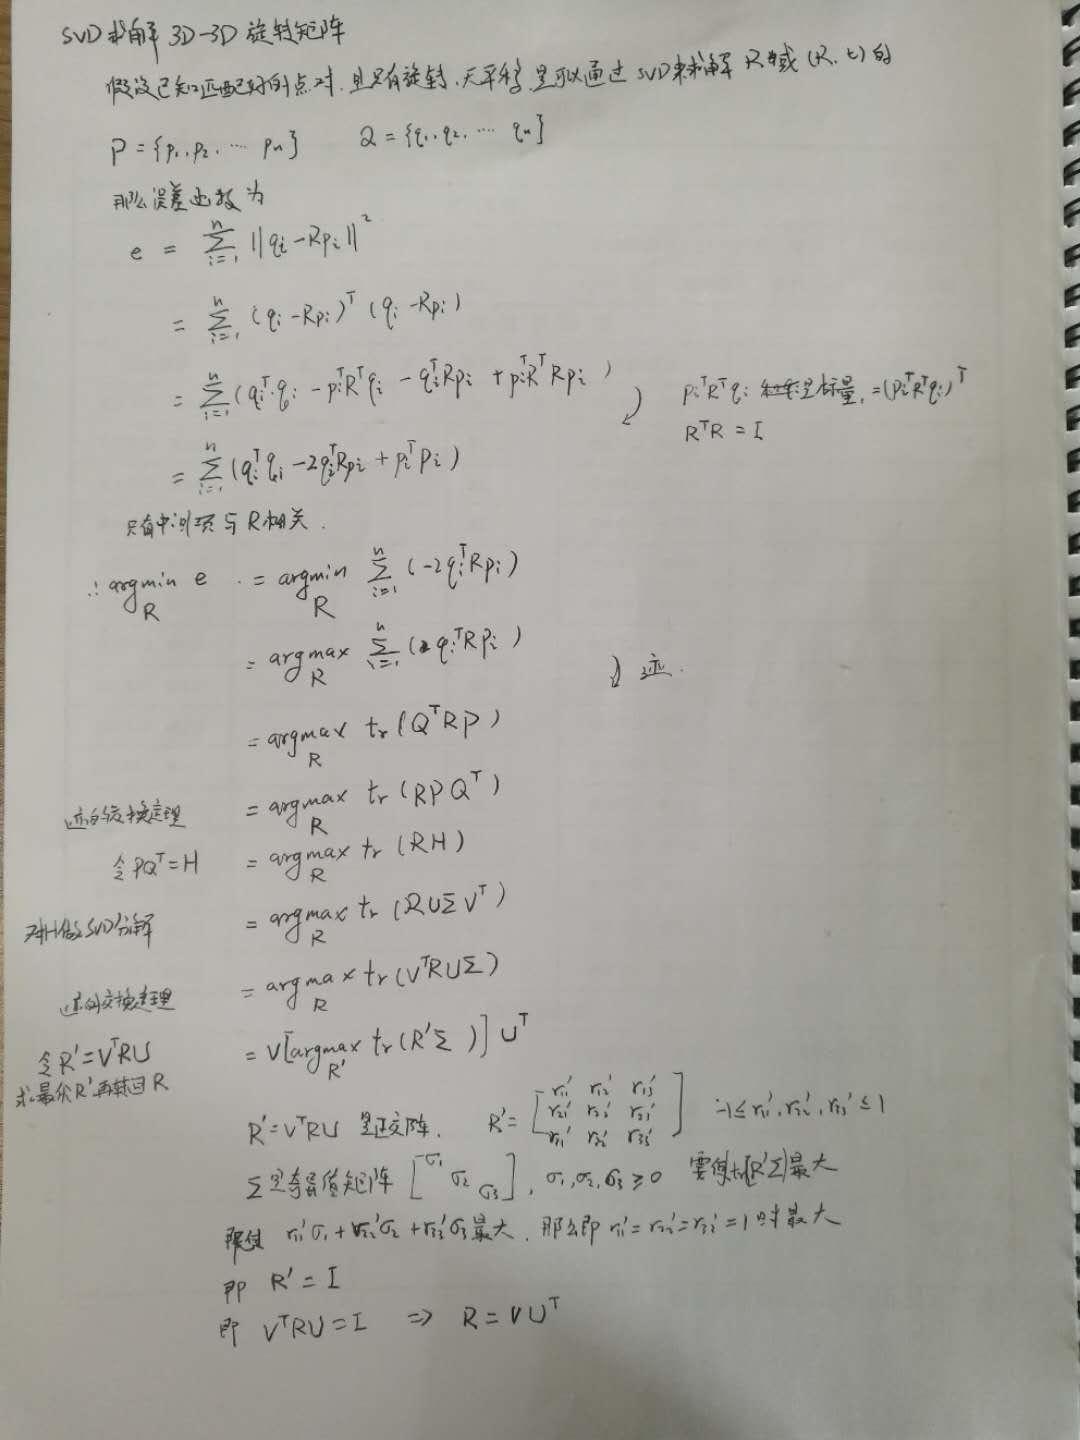 SVD求解 3D-3D 旋转矩阵
假设已知匹配好的点对,且只有旋转,无平移,是可以通过 SVD来求解 R或 (R, t) 的
P = {p₁, p₂, ⋯ pₙ}   Q = {q₁, q₂, ⋯ qₙ}
那么误差函数为
e = ∑ᵢ₌₁ⁿ ||qᵢ - Rpᵢ||²
= ∑ᵢ₌₁ⁿ (qᵢ - Rpᵢ)ᵀ (qᵢ - Rpᵢ)
= ∑ᵢ₌₁ⁿ (qᵢᵀ·qᵢ - pᵢᵀRᵀqᵢ - qᵢᵀRpᵢ + pᵢᵀRᵀRpᵢ)   pᵢᵀRᵀqᵢ 是标量, = (pᵢᵀRᵀqᵢ)ᵀ
RᵀR = I
= ∑ᵢ₌₁ⁿ (qᵢᵀqᵢ - 2qᵢᵀRpᵢ + pᵢᵀpᵢ)
只有中间项与 R相关.
∴ argmin_R e = argmin_R ∑ᵢ₌₁ⁿ (-2qᵢᵀRpᵢ)
= argmax_R ∑ᵢ₌₁ⁿ (qᵢᵀRpᵢ)   迹.
= argmax_R tr(QᵀRP)
迹的交换定理 = argmax_R tr(RPQᵀ)
令PQᵀ=H = argmax_R tr(RH)
对H做SVD分解 = argmax_R tr(RUΣVᵀ)
迹的交换定理 = argmax_R tr(VᵀRUΣ)
令R'=VᵀRU = V[argmax_R' tr(R'Σ)]Uᵀ
求最优R'再转回R
R'=VᵀRU 是正交阵. R'= [r₁₁' r₁₂' r₁₃' r₂₁' r₂₂' r₂₃' r₃₁' r₃₂' r₃₃'] -1≤r₁₁',r₂₂',r₃₃'≤1
Σ是奇异值矩阵 [σ₁ σ₂ σ₃], σ₁,σ₂,σ₃≥0 要使tr[R'Σ]最大
即使 r₁₁'σ₁+r₂₂'σ₂+r₃₃'σ₃最大,那么即 r₁₁'=r₂₂'=r₃₃'=1时最大
即 R'=I
即 VᵀRU=I ⇒ R=VUᵀ